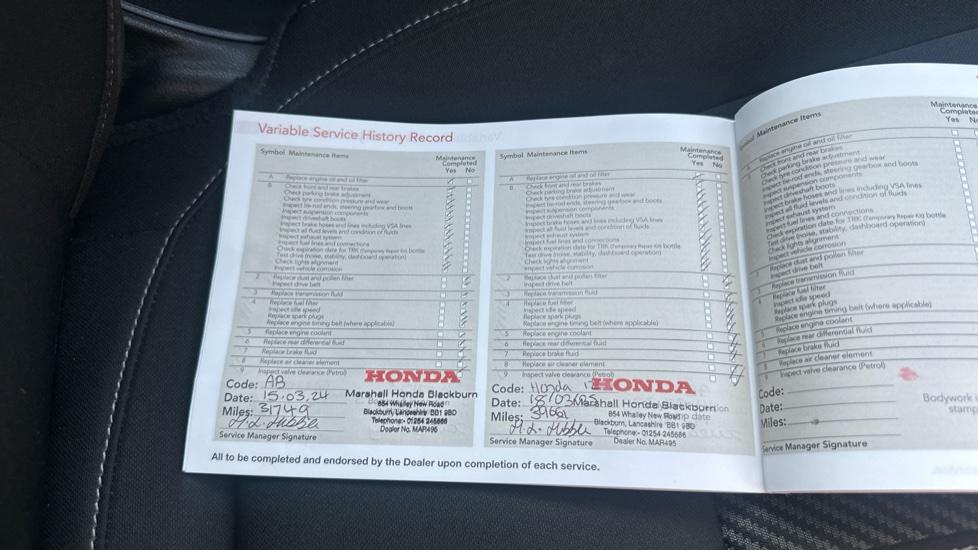 Variable Service History Record
Symbol Maintenance Items
Maintenance
Completed
Yes No
A Replace engine oil and oil filter
B Check front and rear brakes
Check parking brake adjustment
Check tyre condition pressure and wear
Inspect tie-rod ends, steering gearbox and boots
Inspect suspension components
Inspect driveshaft boots
Inspect brake hoses and lines including VSA lines
Inspect all fluid levels and condition of fluids
Inspect exhaust system
Inspect fuel lines and connections
Check expiration date for TRK (Temporary Repair Kit) bottle
Test drive (noise, stability, dashboard operation)
Check lights alignment
Inspect vehicle corrosion
2 Replace dust and pollen filter
Inspect drive belt
3 Replace transmission fluid
4 Replace fuel filter
Inspect idle speed
Replace spark plugs
Replace engine timing belt (where applicable)
5 Replace engine coolant
6 Replace rear differential fluid
7 Replace brake fluid
8 Replace air cleaner element
9 Inspect valve clearance (Petrol)
Code: AB
Date: 15.03.24
Miles: 31749
Service Manager Signature
HONDA
Marshall Honda Blackburn
854 Whalley New Road
Blackburn, Lancashire BB1 9BD
Telephone:- 01254 245686
Dealer No. MAR495
Symbol Maintenance Items
Maintenance
Completed
Yes No
A Replace engine oil and oil filter
B Check front and rear brakes
Check parking brake adjustment
Check tyre condition pressure and wear
Inspect tie-rod ends, steering gearbox and boots
Inspect suspension components
Inspect driveshaft boots
Inspect brake hoses and lines including VSA lines
Inspect all fluid levels and condition of fluids
Inspect exhaust system
Inspect fuel lines and connections
Check expiration date for TRK (Temporary Repair Kit) bottle
Test drive (noise, stability, dashboard operation)
Check lights alignment
Inspect vehicle corrosion
2 Replace dust and pollen filter
Inspect drive belt
3 Replace transmission fluid
4 Replace fuel filter
Inspect idle speed
Replace spark plugs
Replace engine timing belt (where applicable)
5 Replace engine coolant
6 Replace rear differential fluid
7 Replace brake fluid
8 Replace air cleaner element
9 Inspect valve clearance (Petrol)
Code: Honda
Date:
Miles:
Service Manager Signature
HONDA
Marshall Honda Blackburn
854 Whalley New Road
Blackburn, Lancashire BB1 9BD
Telephone:- 01254 245686
Dealer No. MAR495
All to be completed and endorsed by the Dealer upon completion of each service.
Symbol Maintenance Items
Maintenance
Yes
Replace engine oil and oil filter
Check front and rear brakes
Check parking brake adjustment
Check tyre condition pressure and wear
Inspect tie-rod ends, steering gearbox and boots
Inspect suspension components
Inspect driveshaft boots
Inspect brake hoses and lines including VSA lines
Inspect all fluid levels and condition of fluids
Inspect exhaust system
Inspect fuel lines and connections
Check expiration date for TRK (Temporary Repair Kit) bottle
Test drive (noise, stability, dashboard operation)
Check lights alignment
Inspect vehicle corrosion
Replace dust and pollen filter
Inspect drive belt
Replace transmission fluid
Replace fuel filter
Inspect idle speed
Replace spark plugs
Replace engine timing belt (where applicable)
Replace engine coolant
Replace rear differential fluid
Replace brake fluid
Replace air cleaner element
Inspect valve clearance (Petrol)
Code:
Date:
Miles:
Service Manager Signature
Bodywork
stamp